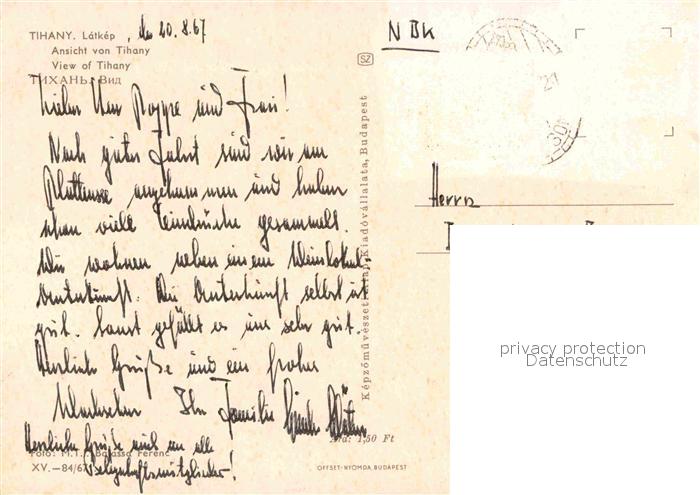 TIHANY. Látkép
, den 20.8.67
Ansicht von Tihany
View of Tihany
ТИХАНЬ. Вид
Lieber Herr Poppe und Frau!
Nach guter Fahrt sind wir am
Plattensee angekommen und haben
schon viele Eindrücke gesammelt.
Wir wohnen neben einem Weinlokal.
Unterkunft. Die Unterkunft selbst ist
gut. Sonst gefällt es uns sehr gut.
Herzliche Grüße und ein frohes
Ihre Familie
Herzliche Grüße auch an alle
Foto: M.T.I. Balassa Ferenc
XV.—84/67
Ára: 1,50 Ft
OFFSET-NYOMDA, BUDAPEST
SZ
Képzőművészeti Alap Kiadóvállalata, Budapest
NBK
Herrn
privacy protection
Datenschutz